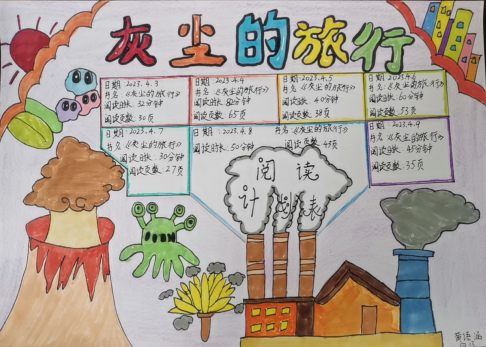 灰尘的旅行
日期:2023.4.3
书名:《灰尘的旅行》
阅读时长:32分钟
阅读页数:30页
日期:2023.4.4
书名:《灰尘的旅行》
阅读页数:65页
日期:2023.4.5
书名:《灰尘的旅行》
阅读时长:40分钟
阅读页数:38页
书名:《灰尘的旅行》
阅读时长:60分钟
阅读页数:53页
日期:2023.4.7
书名:《灰尘的旅行》
阅读时长:30分钟
阅读页数:27页
日期:2023.4.8
阅读时长:50分钟
书名:《灰尘的旅行》
阅读页数:45页
日期:2023.4.9
书名:《灰尘的旅行》
阅读时长:45分钟
阅读页数:35页
阅读
计划表